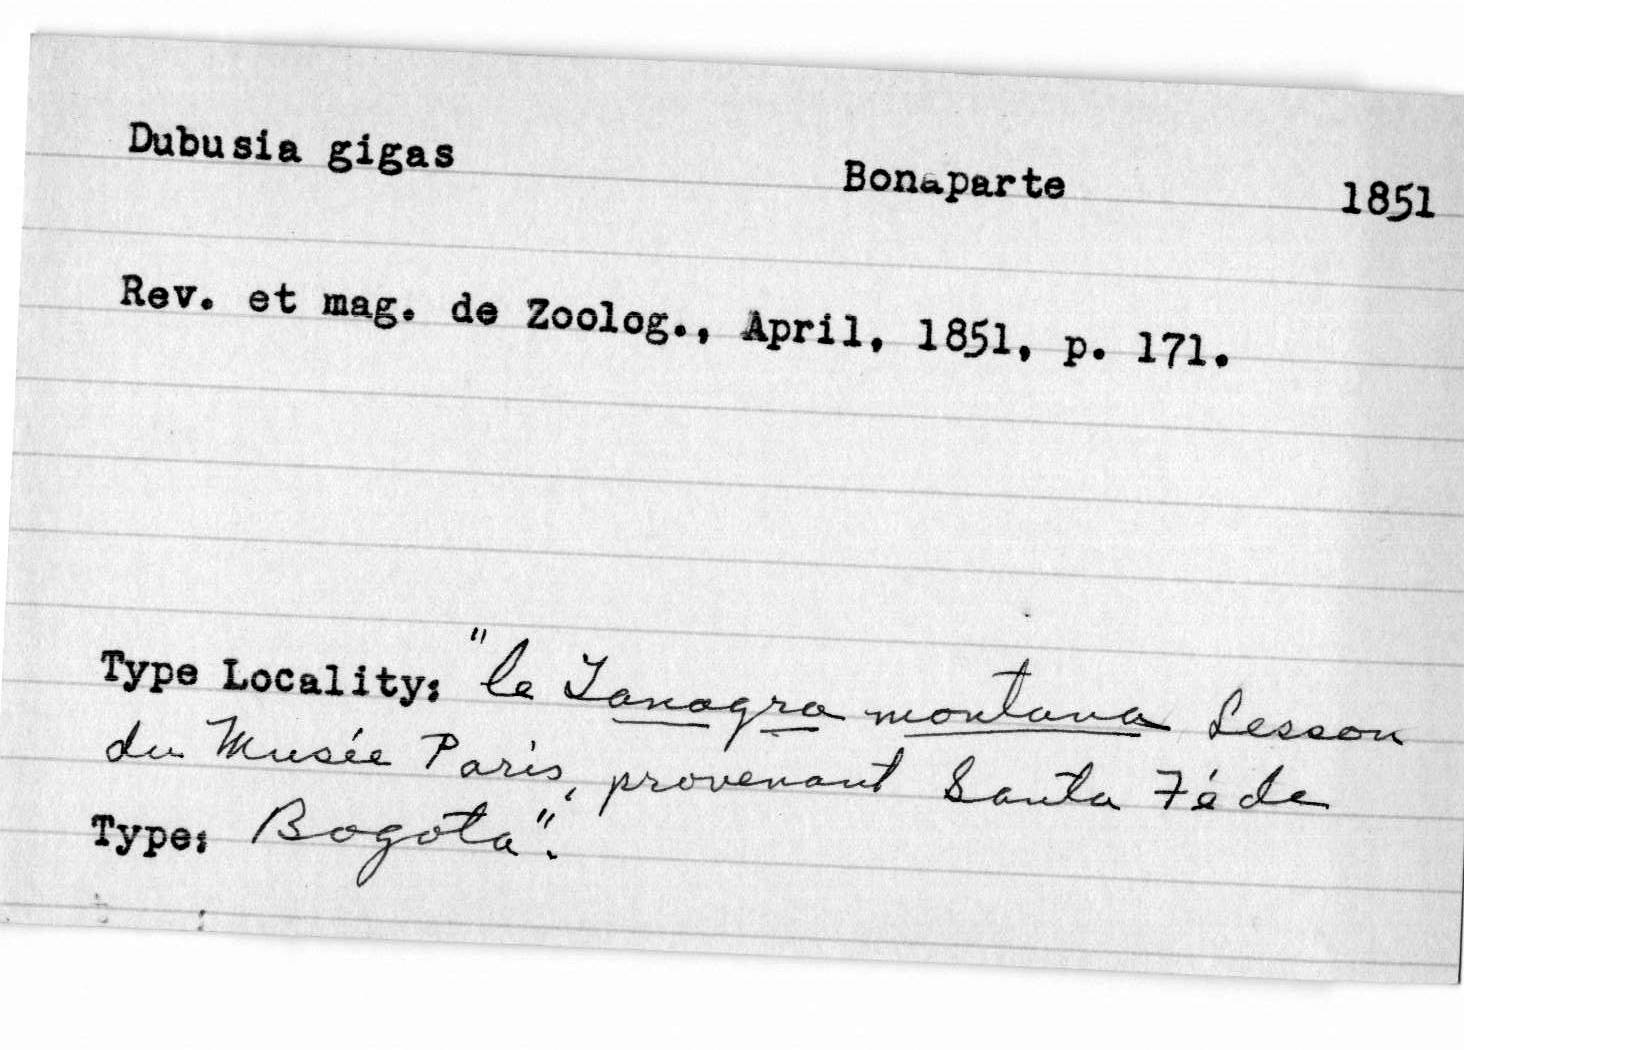 Dubusia gigas Bonaparte 1851
Rev. et mag. de Zoolog., April, 1851, p. 171.
Type Locality: "le Tanagra montana Lesson
du Musée Paris, provenant Santa Fé de
Type: Bogota".